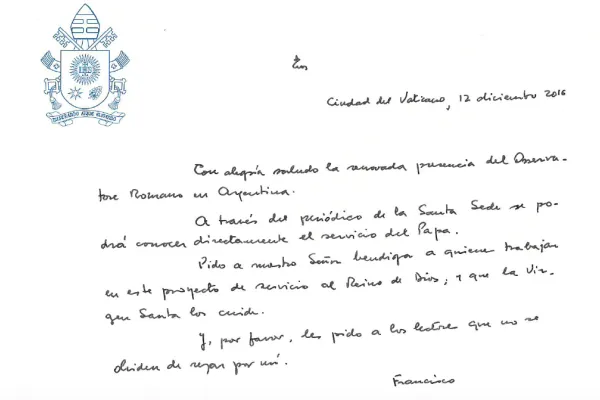 MISERANDO ATQUE ELIGENDO
Ciudad del Vaticano, 12 diciembre 2016
Con alegría saludo la renovada presencia del Osserva-
tore Romano en Argentina.
A través del periódico de la Santa Sede se po-
drá conocer directamente el servicio del Papa.
Pido a nuestro Señor bendiga a quienes trabajan
en este proyecto de servicio al Reino de Dios; y que la Vir-
gen Santa los cuide.
Y, por favor, les pido a los lectores que no se
olviden de rezar por mí.
Francisco